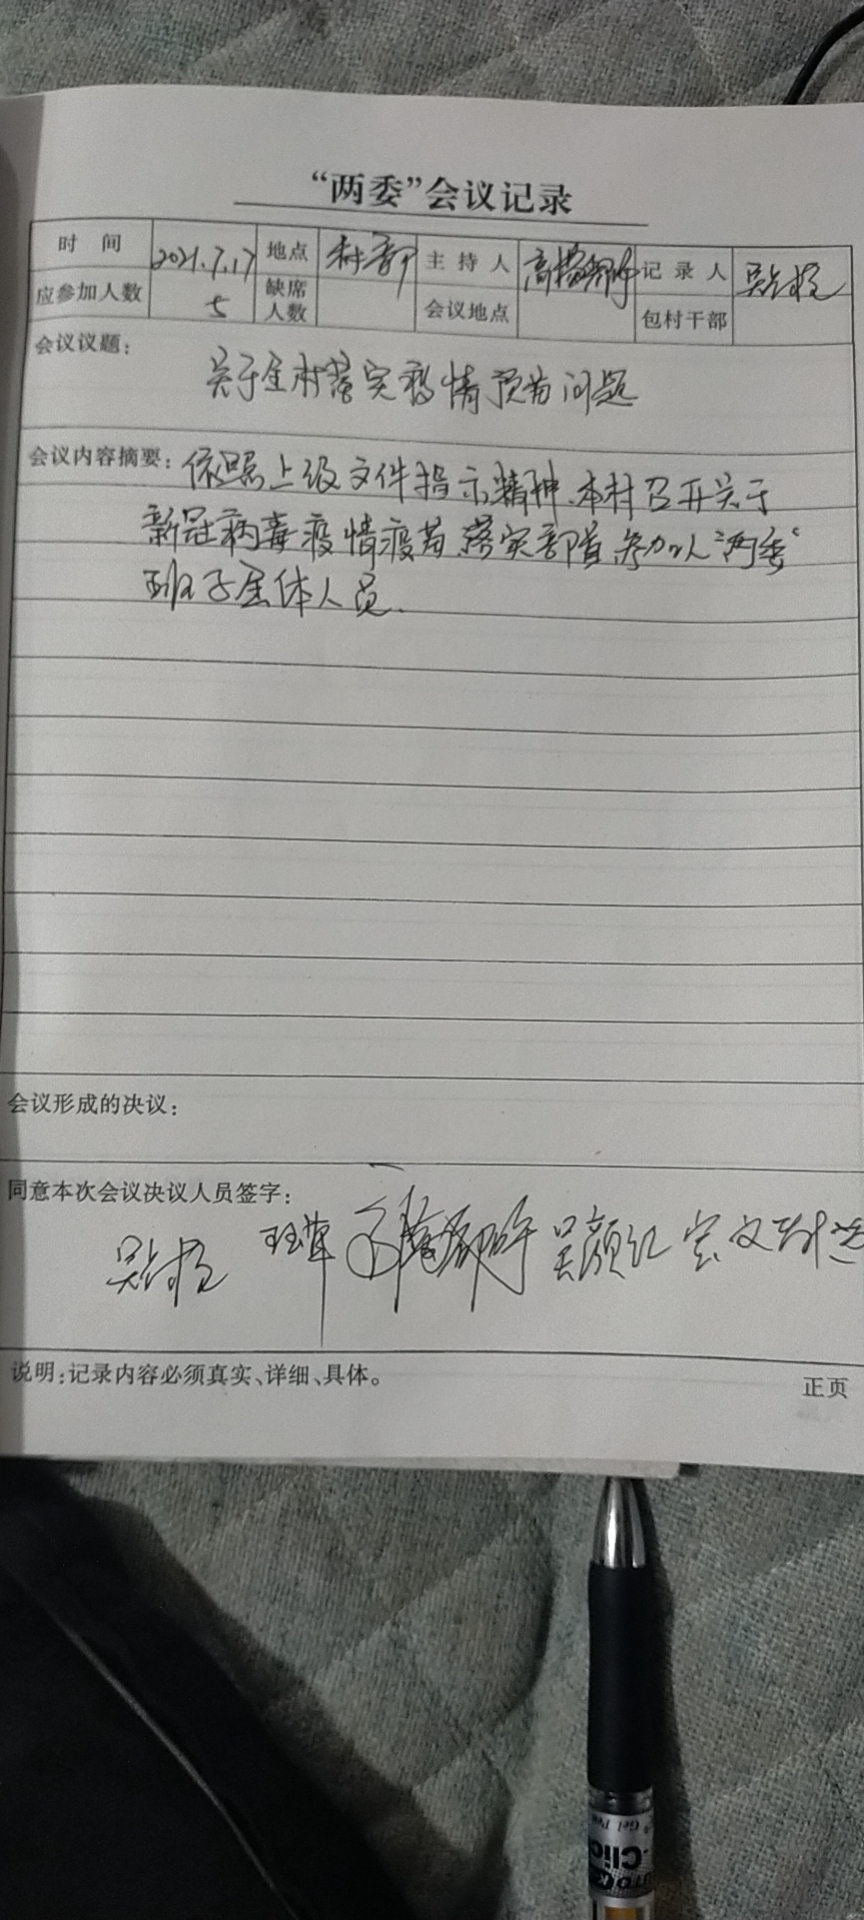 “两委”会议记录
时 间 2021.7.17 地点 村部 主 持 人 记 录 人
应参加人数 5 缺席人数 会议地点 包村干部
会议议题：
关于全村落实疫情预苗问题
会议内容摘要：依照上级文件指示精神.本村召开关于
新冠病毒疫情疫苗落实部署 参加人“两委“
班子全体人员.
会议形成的决议：
同意本次会议决议人员签字：
吴颜红
说明：记录内容必须真实、详细、具体。
正页
Gel Pen
Clic